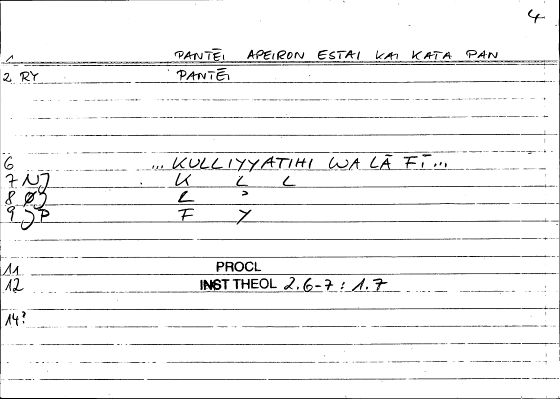 4
1 PANTĒI APEIRON ESTAI KAI KATA PAN
2 RY PANTĒI
6 ... KULLIYYATIHI WA LĀ FĪ...
7 NJ K L L
8 ØJ L ʾ
9 JP F Y
11 PROCL
12 INST THEOL 2.6-7 : 1.7
14?